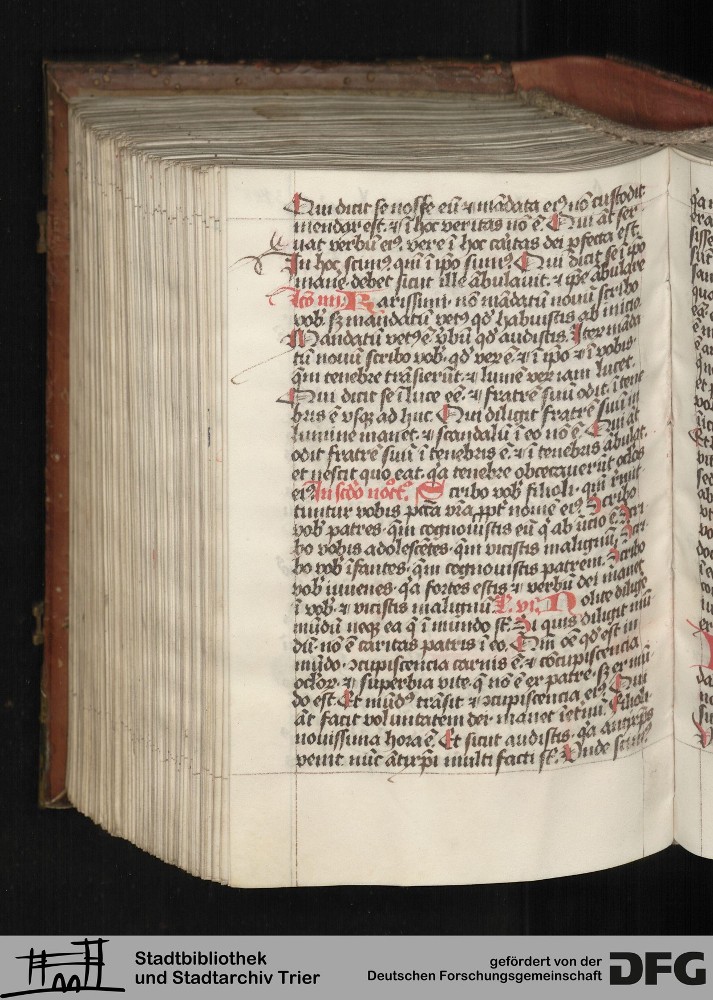 Qui dicit se nosse eū ⁊ mādata eiꝰ nō custodit
mendax est ⁊ ī hoc veritas nō ē. Qui āt ser
uat verbū eiꝰ vere ī hoc cāitas dei pfecta est
In hoc scimꝰ qm̄ ī ipo sumꝰ. Qui dicit se ī ipo
mane debet sicut ille ābulauit ⁊ ipe ābulare
arissimi nō mādatū nouū scribo
vob sꝫ mandatū vetꝰ qd habuistis ab inicio
Mandatū vetꝰ ē vbū qd audistis. Iter māda
tū nouū scribo vob qd ver ē ⁊ ī ipo ⁊ ī vobis
qm̄ tenebre trāsierūt ⁊ lumē verꝰ iam lucet
Qui dicit se ī luce eē ⁊ fratrē suū odit ī tene
bris ē vsqꝫ ad huc. Qui diligit fratrē suū in
lumine manet ⁊ scandalū ī eo nō ē. Qui āt
odit fratrē suū ī tenebris ē ⁊ ī tenebris ābulat
et nescit quo eat qa tenebre obcecauerūt oclos
eiꝰ In scdo nocto Scribo vob filioli qm̄ rmit
tuntur vobis pctā vrā ppt nomē eiꝰ. Scribo
vob patres qm̄ cognouistis eū q ab īicio ē. Scri
bo vobis adolescētes qm̄ vicistis malignū. Scri
bo vob īfantes qm̄ cognouistis patrem. Scribo
vob iuuenes qa fortes estis ⁊ verbū dei manet
ī vob ⁊ vicistis malignū L. vi. Nolite dilige
mūdū neqꝫ ea q ī mūndo st. Si quis diligit mū
dū nō ē caritas patris ī eo. Qm̄ oē qd est in
mūdo ↄcupiscencia carnis ē ⁊ cōcupiscencia
oclor ⁊ superbia vite q nō ē ex patre sꝫ ex mū
do est. Et mūdꝰ trāsit ⁊ ↄcupiscencia eiꝰ. Qui
āt facit voluntatem dei manet ī etnū. Filioli
nouissima hora ē. Et sicut audistis qa antixps
venit nūc ātixpi multi facti st. Vnde scimꝰ
Stadtbibliothek
und Stadtarchiv Trier
gefördert von der
Deutschen Forschungsgemeinschaft
DFG